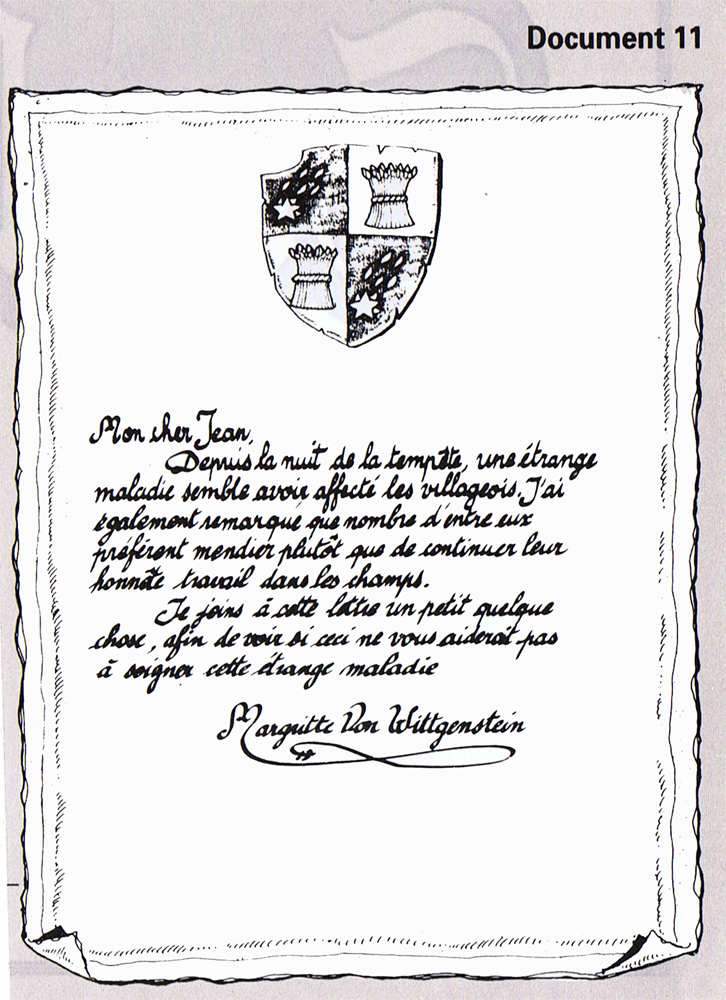 Document 11
Mon cher Jean,
Depuis la nuit de la tempête, une étrange
maladie semble avoir affecté les villageois. J'ai
également remarqué que nombre d'entre eux
préfèrent mendier plutôt que de continuer leur
honnête travail dans les champs.
Je joins à cette lettre un petit quelque
chose, afin de voir si ceci ne vous aiderait pas
à soigner cette étrange maladie
Margritte Von Wittgenstein